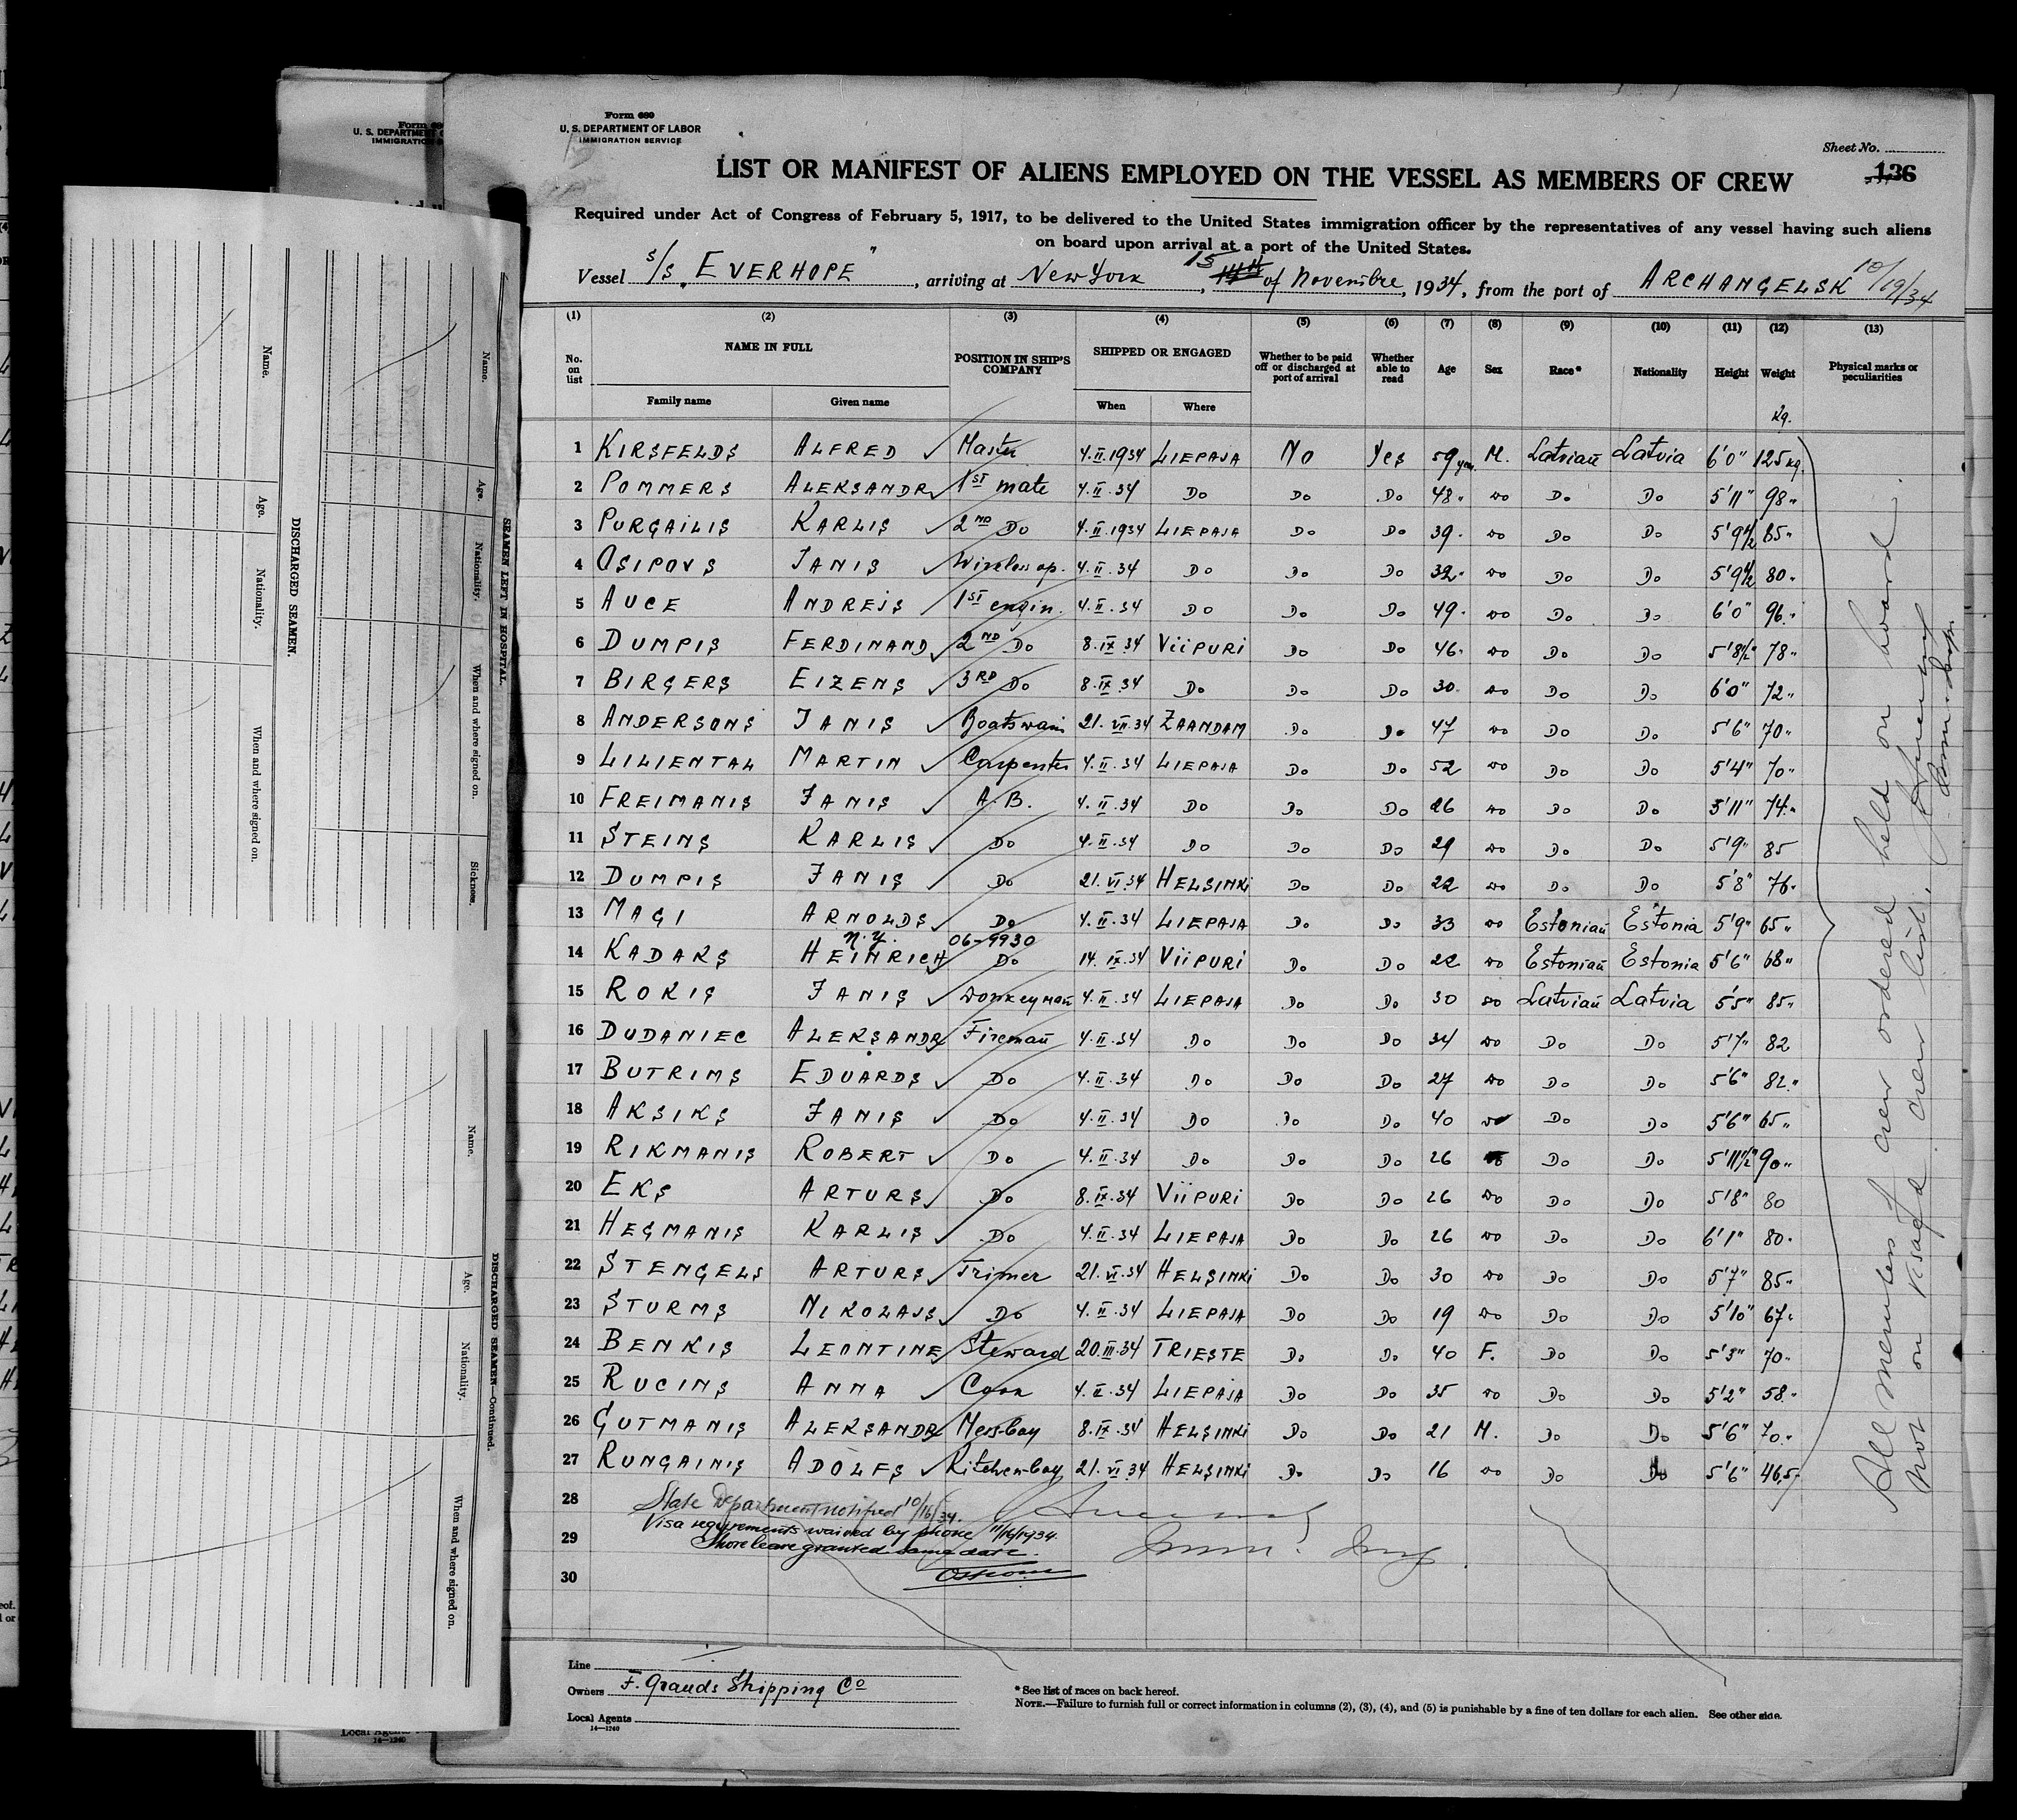 Form 680
U. S. DEPARTMENT OF LABOR
IMMIGRATION SERVICE
Sheet No.
136
LIST OR MANIFEST OF ALIENS EMPLOYED ON THE VESSEL AS MEMBERS OF CREW
Required under Act of Congress of February 5, 1917, to be delivered to the United States immigration officer by the representatives of any vessel having such aliens
on board upon arrival at a port of the United States.
Vessel S/S "EVERHOPE", arriving at New York, 15 of Novembre, 1934, from the port of ARCHANGELSK 10/19/34
(1) (2) (3) (4) (5) (6) (7) (8) (9) (10) (11) (12) (13)
No. on list NAME IN FULL POSITION IN SHIP'S COMPANY SHIPPED OR ENGAGED Whether to be paid off or discharged at port of arrival Whether able to read Age Sex Race* Nationality Height Weight Physical marks or peculiarities
Family name Given name When Where Kg.
1 KIRSFELDS ALFRED Master 4.II.1934 LIEPAJA No Yes 59 yea M. Latvian Latvia 6'0" 125 kg.
2 POMMERS ALEKSANDR 1ST mate 4.II.34 Do Do Do 48" Do Do Do 5'11" 98"
3 PURGAILIS KARLIS 2ND Do 4.II.1934 LIEPAJA Do Do 39 Do Do Do 5'9½ 85"
4 OSIPOVS JANIS Wireless op. 4.II.34 Do Do Do 32 Do Do Do 5'9½ 80
5 AUCE ANDREJS 1ST engin. 4.II.34 Do Do Do 49 Do Do Do 6'0" 96
6 DUMPIS FERDINAND 2ND Do 8.IX.34 ViiPURi Do Do 46 Do Do Do 5'8½" 78"
7 BIRGERS EIZENS 3RD Do 8.IX.34 Do Do Do 30 Do Do Do 6'0" 72"
8 ANDERSONS JANIS Boatswain 21.VII.34 ZAANDAM Do Do 47 Do Do Do 5'6" 70"
9 LILIENTAL MARTIN Carpenter 4.II.34 LIEPAJA Do Do 52 Do Do Do 5'4" 70"
10 FREIMANIS JANIS A.B. 4.II.34 Do Do Do 26 Do Do Do 5'11" 74"
11 STEINS KARLIS Do 4.II.34 Do Do Do 29 Do Do Do 5'9" 85
12 DUMPIS JANIS Do 21.VI.34 HELSINKi Do Do 22 Do Do Do 5'8" 76
13 MAGI ARNOLDS Do 4.II.34 LIEPAJA Do Do 33 Do Estonian Estonia 5'9" 65"
N.Y. 06-9930
14 KADAKS HEINRICH Do 14.IX.34 ViiPURi Do Do 22 Do Estonian Estonia 5'6" 68"
15 ROKIS JANIS Donkeyman 4.II.34 LIEPAJA Do Do 30 Do Latvian Latvia 5'5" 85"
16 DUDANIEC ALEKSANDR Fireman 4.II.34 Do Do Do 34 Do Do Do 5'7" 82
17 BUTRIMS EDUARDS Do 4.II.34 Do Do Do 27 Do Do Do 5'6" 82"
18 AKSIKS JANIS Do 4.II.34 Do Do Do 40 Do Do Do 5'6" 65"
19 RIKMANIS ROBERT Do 4.II.34 Do Do Do 26 Do Do 5'11½" 90"
20 EKS ARTURS Do 8.IX.34 ViiPURi Do Do 26 Do Do Do 5'8" 80
21 HEGMANIS KARLIS Do 4.II.34 LIEPAJA Do Do 26 Do Do Do 6'1" 80
22 STENGELS ARTURS Trimer 21.VI.34 HELSINKi Do Do 30 Do Do Do 5'7" 85
23 STURMS NIKOLAJS Do 4.II.34 LIEPAJA Do Do 19 Do Do Do 5'10" 67
24 BENKIS LEONTINE Steward 20.III.34 TRIESTE Do Do 40 F. Do Do 5'3" 70
25 RUCINS ANNA Cook 4.II.34 LIEPAJA Do Do 35 Do Do Do 5'2" 58
26 GUTMANIS ALEKSANDR Mess-boy 8.IX.34 HELSINKi Do Do 21 M. Do Do 5'6" 70
27 RUNGAINIS ADOLFS Kitchen-boy 21.VI.34 HELSINKi Do Do 16 Do Do Do 5'6" 46,5
28 State Department notified 10/16/34.
Visa requirements waived by phone 11/16/1934.
29 Shore leave granted same date.
30
All members of crew ordered held on board.
Not on visaed crew list.
Line
Owners F. Grauds Shipping Co
Local Agents
14—1240
* See list of races on back hereof.
NOTE.—Failure to furnish full or correct information in columns (2), (3), (4), and (5) is punishable by a fine of ten dollars for each alien. See other side.
SEAMEN LEFT IN HOSPITAL.
Name. Age. Nationality. When and where signed on. Sickness.
DISCHARGED SEAMEN.
Name. Age. Nationality. When and where signed on.
DISCHARGED SEAMEN—Continued.
Name. Age. Nationality. When and where signed on.
Form 680
U. S. DEPARTMENT
IMMIGRATION
Local Agents
14—1240